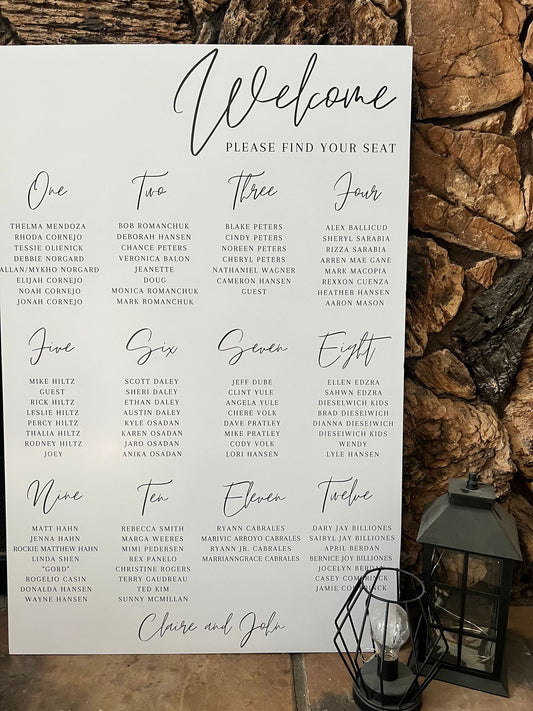 Welcome
PLEASE FIND YOUR SEAT
One
THELMA MENDOZA
RHODA CORNEJO
TESSIE OLIENICK
DEBBIE NORGARD
ALLAN/MYKHO NORGARD
ELIJAH CORNEJO
NOAH CORNEJO
JONAH CORNEJO
Two
BOB ROMANCHUK
DEBORAH HANSEN
CHANCE PETERS
VERONICA BALON
JEANETTE
DOUG
MONICA ROMANCHUK
MARK ROMANCHUK
Three
BLAKE PETERS
CINDY PETERS
NOREEN PETERS
CHERYL PETERS
NATHANIEL WAGNER
CAMERON HANSEN
GUEST
Four
ALEX BALLICUD
SHERYL SARABIA
RIZZA SARABIA
ARREN MAE GANE
MARK MACOPIA
REXXON CUENZA
HEATHER HANSEN
AARON MASON
Five
MIKE HILTZ
GUEST
RICK HILTZ
LESLIE HILTZ
PERCY HILTZ
THALIA HILTZ
RODNEY HILTZ
JOEY
Six
SCOTT DALEY
SHERI DALEY
ETHAN DALEY
AUSTIN DALEY
KYLE OSADAN
KAREN OSADAN
JARO OSADAN
ANIKA OSADAN
Seven
JEFF DUBE
CLINT YULE
ANGELA YULE
CHERE VOLK
DAVE PRATLEY
MIKE PRATLEY
CODY VOLK
LORI HANSEN
Eight
ELLEN EDZRA
SAHWN EDZRA
DIESELWICH KIDS
BRAD DIESEIWICH
DIANNA DIESEIWICH
DIESEIWICH KIDS
WENDY
LYLE HANSEN
Nine
MATT HAHN
JENNA HAHN
ROCKIE MATTHEW HAHN
LINDA SHEN
"GORD"
ROGELIO CASIN
DONALDA HANSEN
WAYNE HANSEN
Ten
REBECCA SMITH
MARGA WEERES
MIMI PEDERSEN
REX PANELO
CHRISTINE ROGERS
TERRY GAUDREAU
TED KIM
SUNNY MCMILLAN
Eleven
RYANN CABRALES
MARIVIC ARROYO CABRALES
RYANN JR. CABRALES
MARRIANNGRACE CABRALES
Twelve
DARY JAY BILLIONES
SAIRYL JAY BILLIONES
APRIL BERDAN
BERNICE JOY BILLIONES
JOCELYN BERDAL
CASEY COMBRINCK
JAMIE COMBRINCK
Claire and John